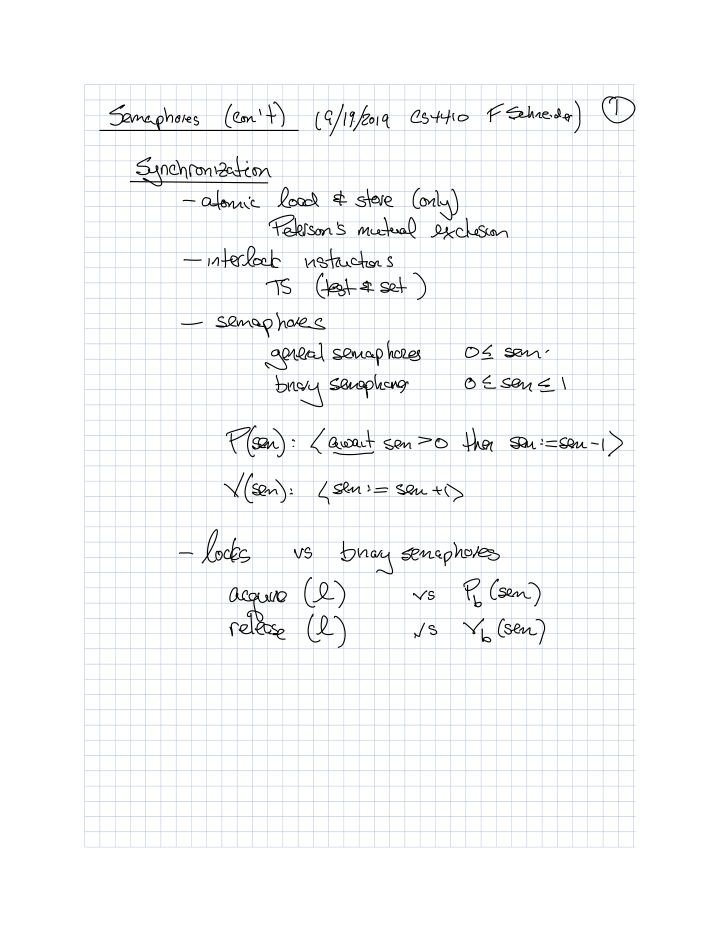 Semaphores (con't) (9/19/2019 CS4410 F Schneider) 1
Synchronization
- atomic load & store (only)
Peterson's mutual exclusion
- interlock instructions
TS (test & set)
- semaphores
general semaphores 0 ≤ sem
binary semaphores 0 ≤ sem ≤ 1
P(sem): < await sem > 0 then sem := sem - 1 >
V(sem): < sem := sem + 1 >
- locks vs binary semaphores
acquire (l) vs P_b (sem)
release (l) vs V_b (sem)